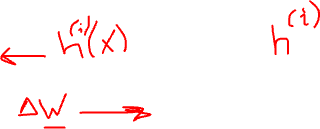 ← h^(i)(x) h^(i)
ΔW →